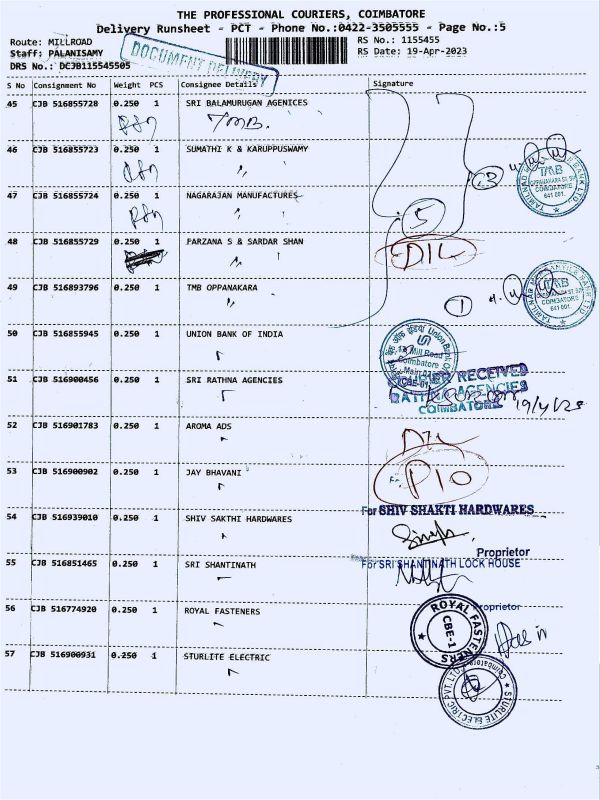 THE PROFESSIONAL COURIERS, COIMBATORE
Delivery Runsheet - PCT - Phone No.:0422-3505555 - Page No.:5
Route: MILLROAD
RS No.: 1155455
Staff: PALANISAMY
RS Date: 19-Apr-2023
DRS No.: DCJB115545505
DOCUMENT DELIVERY
S No Consignment No Weight PCS Consignee Details Signature
45 CJB 516855728 0.250 1 SRI BALAMURUGAN AGENICES
TMB.
46 CJB 516855723 0.250 1 SUMATHI K & KARUPPUSWAMY
47 CJB 516855724 0.250 1 NAGARAJAN MANUFACTURES
5
48 CJB 516855729 0.250 1 FARZANA S & SARDAR SHAN
D/L
49 CJB 516893796 0.250 1 TMB OPPANAKARA
1
TMB
COIMBATORE
641 001.
50 CJB 516855945 0.250 1 UNION BANK OF INDIA
Mill Road
Coimbatore
Main
CBE-01
51 CJB 516900456 0.250 1 SRI RATHNA AGENCIES
RECEIVED
AGENCIES
COIMBATORE
19/4/23
52 CJB 516901783 0.250 1 AROMA ADS
D/L
53 CJB 516900902 0.250 1 JAY BHAVANI
P10
54 CJB 516939010 0.250 1 SHIV SAKTHI HARDWARES
For SHIV SHAKTI HARDWARES
Proprietor
55 CJB 516851465 0.250 1 SRI SHANTINATH
For SRI SHANTINATH LOCK HOUSE
Proprietor
56 CJB 516774920 0.250 1 ROYAL FASTENERS
ROYAL FASTENERS
CBE-1
57 CJB 516900931 0.250 1 STURLITE ELECTRIC
STURLITE ELECTRIC PVT. LTD.
Coimbatore